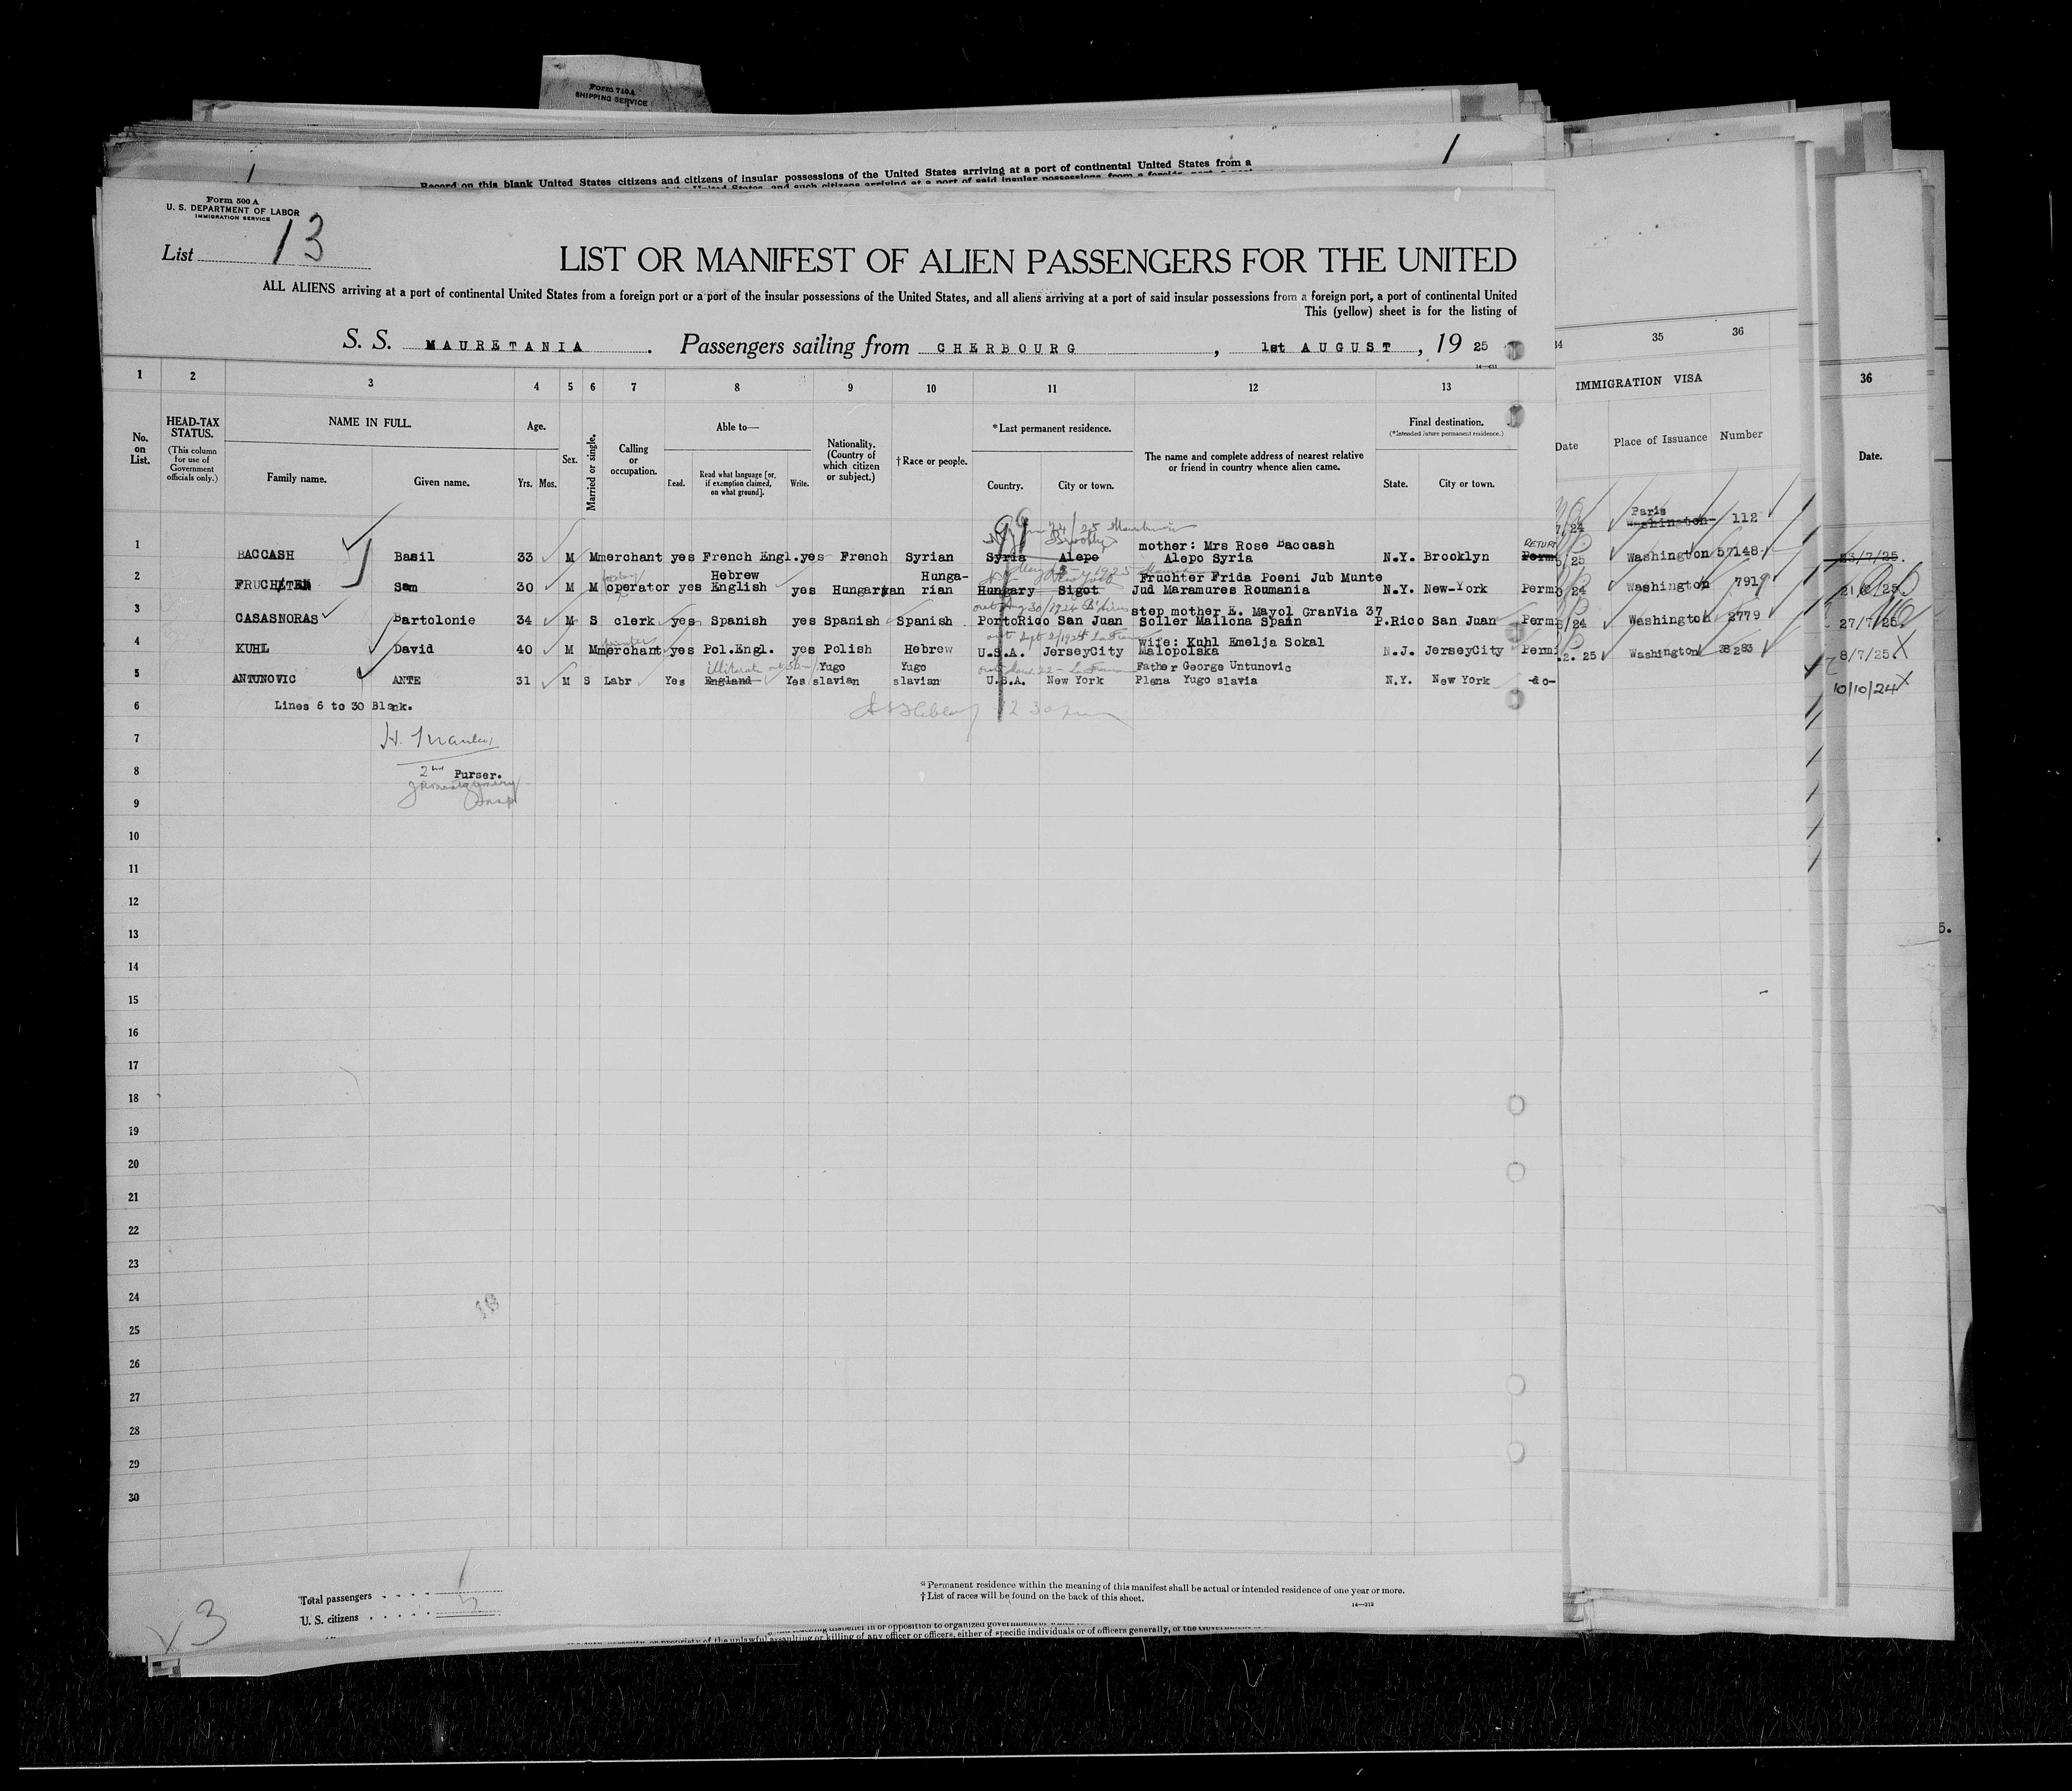 Form 710A
SHIPPING SERVICE
Record on this blank United States citizens and citizens of insular possessions of the United States arriving at a port of continental United States from a
Form 500 A
U. S. DEPARTMENT OF LABOR
IMMIGRATION SERVICE
List 13
LIST OR MANIFEST OF ALIEN PASSENGERS FOR THE UNITED
ALL ALIENS arriving at a port of continental United States from a foreign port or a port of the insular possessions of the United States, and all aliens arriving at a port of said insular possessions from a foreign port, a port of continental United
This (yellow) sheet is for the listing of
S. S. MAURETANIA. Passengers sailing from CHERBOURG, 1st AUGUST, 19 25
1 2 3 4 5 6 7 8 9 10 11 12 13 34 35 36
IMMIGRATION VISA
36
No. on List.
HEAD-TAX STATUS.
(This column for use of Government officials only.)
NAME IN FULL.
Family name. Given name.
Age.
Yrs. Mos.
Sex.
Married or single.
Calling or occupation.
Able to—
Read. Read what language [or, if exemption claimed, on what ground]. Write.
Nationality. (Country of which citizen or subject.)
†Race or people.
*Last permanent residence.
Country. City or town.
The name and complete address of nearest relative or friend in country whence alien came.
Final destination.
(*Intended future permanent residence.)
State. City or town.
Date Place of Issuance Number
Date.
Paris
Washington 112
1 BACCASH Basil 33 M M merchant yes French Engl. yes French Syrian Syria Alepo mother: Mrs Rose Baccash Alepo Syria N.Y. Brooklyn Washington 57148 23/7/25.
Brooklyn
2 FRUCHTER Sam 30 M M operator yes Hebrew English yes Hungarian Hunga-rian Hungary Sigot Fruchter Frida Poeni Jub Munte Jud Maramures Roumania N.Y. New-York Perm Washington 7919
New York
3 CASASNORAS Bartolonie 34 M S clerk yes Spanish yes Spanish Spanish PortoRico San Juan step mother E. Mayol GranVia 37 Soller Mallona Spain P.Rico San Juan Perm Washington 2779 27/7/25.
4 KUHL David 40 M M merchant yes Pol.Engl. yes Polish Hebrew U.S.A. JerseyCity wife: Kuhl Emelja Sokal Malopolska N.J. JerseyCity Perm 2. 25 Washington 8/7/25. X
5 ANTUNOVIC ANTE 31 M S Labr Yes England Yes Yugo slavian Yugo slavian U.S.A. New York Father George Untunovic Plena Yugo slavia N.Y. New York -do- 10/10/24 X
6 Lines 6 to 30 Blank.
7
8 2nd Purser.
9
10
11
12
13
14
15
16
17
18
19
20
21
22
23
24
25
26
27
28
29
30
Total passengers
U. S. citizens
3
* Permanent residence within the meaning of this manifest shall be actual or intended residence of one year or more.
† List of races will be found on the back of this sheet.